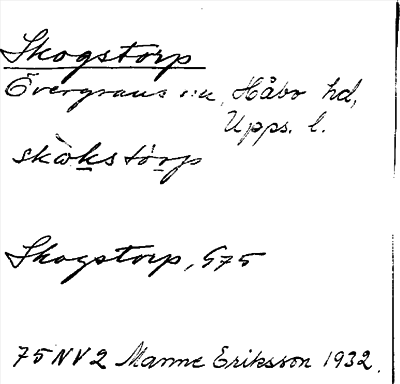 Skogstorp
Övergrans sn, Håbo hd,
Upps. l.
skòkstórp
Skogstorp, G75
75 NV2 Manne Eriksson 1932.